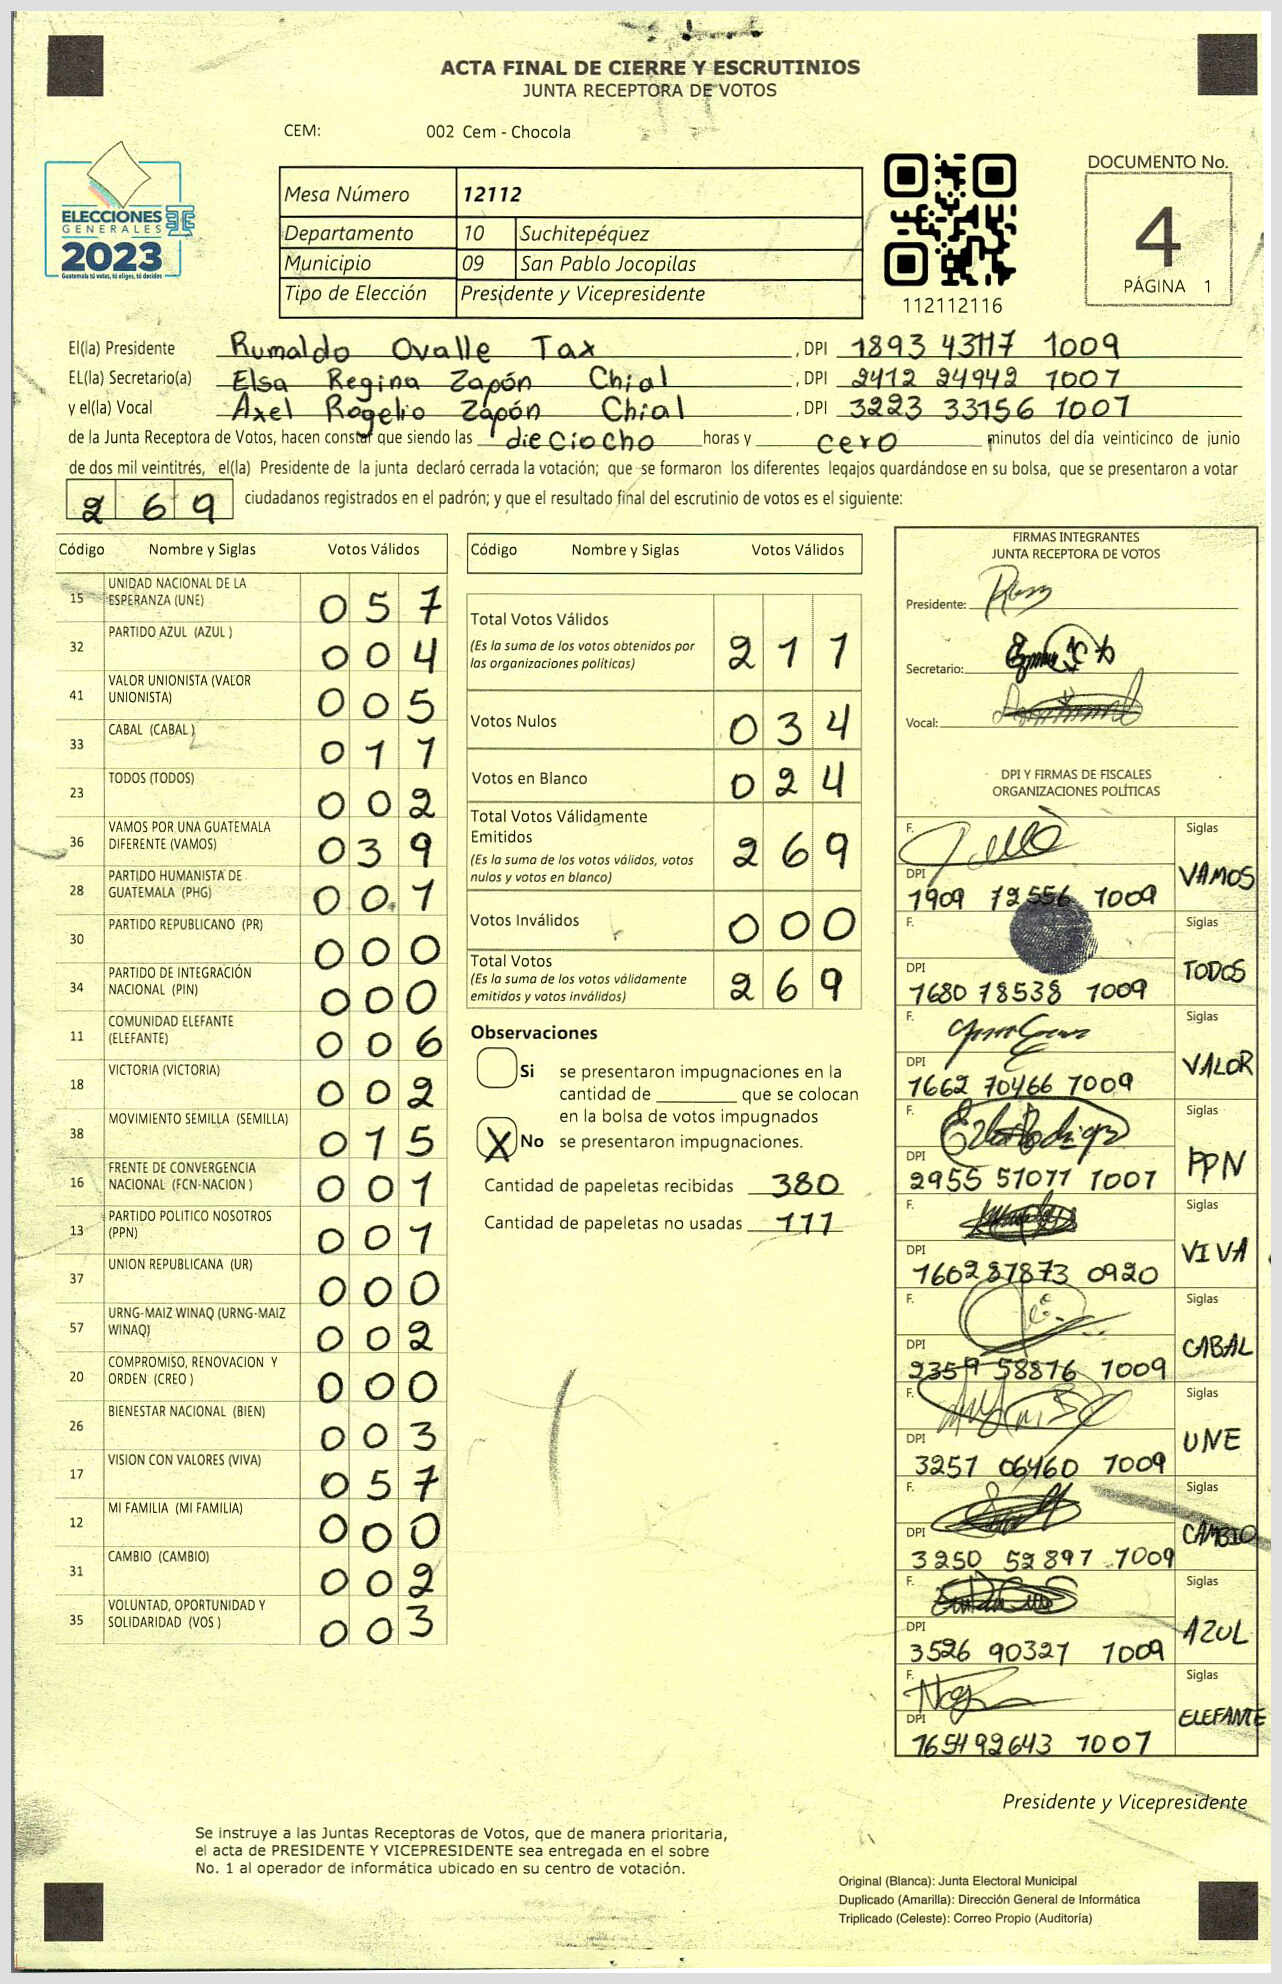 ACTA FINAL DE CIERRE Y ESCRUTINIOS
JUNTA RECEPTORA DE VOTOS
CEM: 002 Cem - Chocola
ELECCIONES
GENERALES
2023
Guatemala tú votas, tú eliges, tú decides
Mesa Número 12112
Departamento 10 Suchitepéquez
Municipio 09 San Pablo Jocopilas
Tipo de Elección Presidente y Vicepresidente
112112116
DOCUMENTO No.
4
PÁGINA 1
El(la) Presidente Rumaldo Ovalle Tax , DPI 1893 43117 1009
EL(la) Secretario(a) Elsa Regina Zapón Chial , DPI 2412 24942 1007
y el(la) Vocal Axel Rogelio Zapón Chial , DPI 3223 33156 1007
de la Junta Receptora de Votos, hacen constar que siendo las dieciocho horas y cero minutos del día veinticinco de junio
de dos mil veintitrés, el(la) Presidente de la junta declaró cerrada la votación; que se formaron los diferentes legajos quardándose en su bolsa, que se presentaron a votar
269 ciudadanos registrados en el padrón; y que el resultado final del escrutinio de votos es el siguiente:
Código Nombre y Siglas Votos Válidos
15 UNIDAD NACIONAL DE LA
ESPERANZA (UNE) 057
32 PARTIDO AZUL (AZUL ) 004
41 VALOR UNIONISTA (VALOR
UNIONISTA) 005
33 CABAL (CABAL ) 011
23 TODOS (TODOS) 002
36 VAMOS POR UNA GUATEMALA
DIFERENTE (VAMOS) 039
28 PARTIDO HUMANISTA DE
GUATEMALA (PHG) 001
30 PARTIDO REPUBLICANO (PR) 000
34 PARTIDO DE INTEGRACIÓN
NACIONAL (PIN) 000
11 COMUNIDAD ELEFANTE
(ELEFANTE) 006
18 VICTORIA (VICTORIA) 002
38 MOVIMIENTO SEMILLA (SEMILLA) 015
16 FRENTE DE CONVERGENCIA
NACIONAL (FCN-NACION ) 001
13 PARTIDO POLITICO NOSOTROS
(PPN) 001
37 UNION REPUBLICANA (UR) 000
57 URNG-MAIZ WINAQ (URNG-MAIZ
WINAQ) 002
20 COMPROMISO, RENOVACION Y
ORDEN (CREO ) 000
26 BIENESTAR NACIONAL (BIEN) 003
17 VISION CON VALORES (VIVA) 057
12 MI FAMILIA (MI FAMILIA) 000
31 CAMBIO (CAMBIO) 002
35 VOLUNTAD, OPORTUNIDAD Y
SOLIDARIDAD (VOS ) 003
Código Nombre y Siglas Votos Válidos
Total Votos Válidos
(Es la suma de los votos obtenidos por
las organizaciones politicas) 211
Votos Nulos 034
Votos en Blanco 024
Total Votos Válidamente
Emitidos
(Es la suma de los votos válidos, votos
nulos y votos en blanco) 269
Votos Inválidos 000
Total Votos
(Es la suma de los votos válidamente
emitidos y votos inválidos) 269
Observaciones
Si se presentaron impugnaciones en la
cantidad de ________ que se colocan
en la bolsa de votos impugnados
X No se presentaron impugnaciones.
Cantidad de papeletas recibidas 380
Cantidad de papeletas no usadas 111
FIRMAS INTEGRANTES
JUNTA RECEPTORA DE VOTOS
Presidente:
Secretario:
Vocal:
DPI Y FIRMAS DE FISCALES
ORGANIZACIONES POLÍTICAS
F. Siglas
DPI 1909 72556 1009 VAMOS
F. Siglas
DPI 1680 78538 1009 TODOS
F. Siglas
DPI 1662 70466 1009 VALOR
F. Siglas
DPI 2955 51077 1007 PPN
F. Siglas
DPI 1602 87873 0920 VIVA
F. Siglas
DPI 2359 58876 1009 CABAL
F. Siglas
DPI 3257 06460 1009 UNE
F. Siglas
DPI 3250 52897 1009 CAMBIO
F. Siglas
DPI 3526 90327 1009 AZUL
F. Siglas
DPI 1654 92643 1007 ELEFANTE
Presidente y Vicepresidente
Se instruye a las Juntas Receptoras de Votos, que de manera prioritaria,
el acta de PRESIDENTE Y VICEPRESIDENTE sea entregada en el sobre
No. 1 al operador de informática ubicado en su centro de votación.
Original (Blanca): Junta Electoral Municipal
Duplicado (Amarilla): Dirección General de Informática
Triplicado (Celeste): Correo Propio (Auditoría)